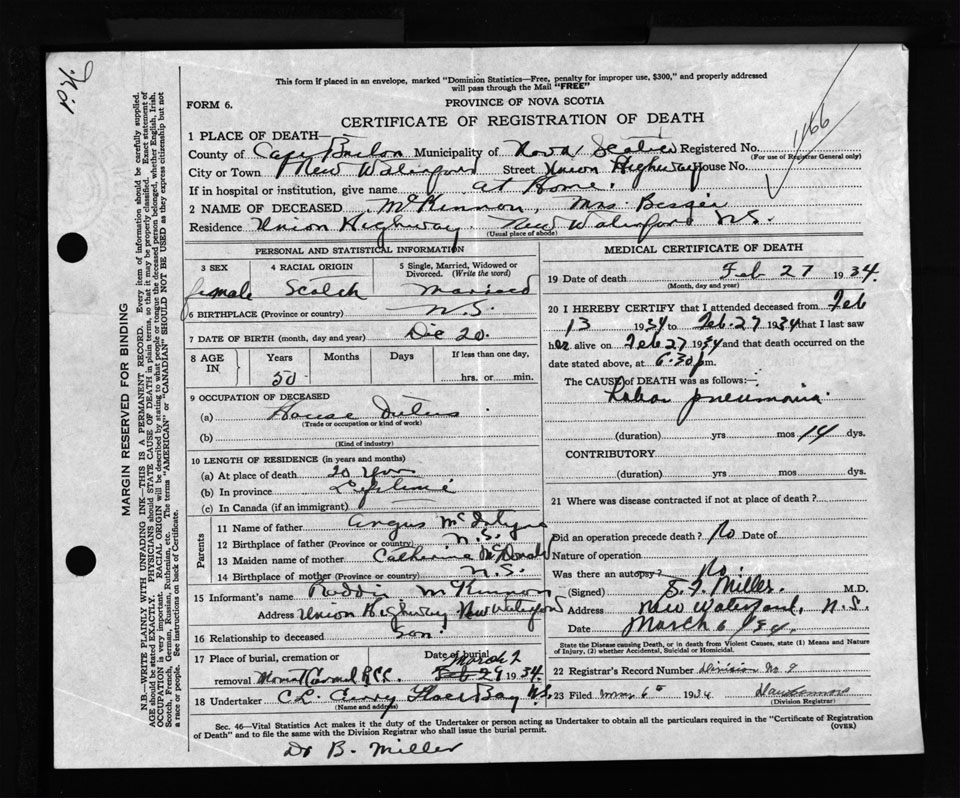 This form if placed in an envelope, marked "Dominion Statistics—Free, penalty for improper use, $300," and properly addressed
will pass through the Mail "FREE"
FORM 6.
PROVINCE OF NOVA SCOTIA
CERTIFICATE OF REGISTRATION OF DEATH
1166
MARGIN RESERVED FOR BINDING
N.B.—WRITE PLAINLY WITH UNFADING INK—THIS IS A PERMANENT RECORD. Every item of information should be carefully supplied.
AGE should be stated EXACTLY. PHYSICIANS should STATE CAUSE OF DEATH in plain terms, so that it may be properly classified. Exact statement of
OCCUPATION is very important. RACIAL ORIGIN will be described by stating to what people or tongue the deceased person belonged, whether English, Irish,
Scotch, French, German, Russian, Ruthenian, etc. The terms "AMERICAN" or "CANADIAN" SHOULD NOT BE USED as they express citizenship but not
a race or people. See instructions on back of Certificate.
1 PLACE OF DEATH—
County of Cape Breton Municipality of Nova Scotia Registered No.
(For use of Registrar General only)
City or Town New Waterford Street Union Highway House No.
If in hospital or institution, give name at Home.
2 NAME OF DECEASED McKinnon, Mrs Bessie
Residence Union Highway New Waterford N.S.
(Usual place of abode)
PERSONAL AND STATISTICAL INFORMATION
3 SEX
female
4 RACIAL ORIGIN
Scotch
5 Single, Married, Widowed or
Divorced. (Write the word)
married
6 BIRTHPLACE (Province or country) N.S.
7 DATE OF BIRTH (month, day and year) Dec 20.
8 AGE IN
Years Months Days If less than one day,
50 hrs. or min.
9 OCCUPATION OF DECEASED
(a) House Duties
(Trade or occupation or kind of work)
(b)
(Kind of industry)
10 LENGTH OF RESIDENCE (in years and months)
(a) At place of death 20 yrs
(b) In province Lifetime
(c) In Canada (if an immigrant)
Parents
11 Name of father Angus McIntyre
12 Birthplace of father (Province or country) N.S.
13 Maiden name of mother Catherine McDonald
14 Birthplace of mother (Province or country) N.S.
15 Informant's name Roddie McKinnon
Address Union Highway New Waterford
16 Relationship to deceased son
17 Place of burial, cremation or
removal Mount Carmel R.C.C.
Date of burial
March 2
1934.
18 Undertaker C.L. Curry Glace Bay N.S.
(Name and address)
MEDICAL CERTIFICATE OF DEATH
19 Date of death Feb 27 1934.
(Month, day and year)
20 I HEREBY CERTIFY that I attended deceased from Feb
13 1934 to Feb. 27 1934 that I last saw
her alive on Feb 27 1934 and that death occurred on the
date stated above, at 6.30 p.m.
The CAUSE of DEATH was as follows:—
Lobar pneumonia.
(duration) yrs mos 14 dys.
CONTRIBUTORY
(duration) yrs mos dys.
21 Where was disease contracted if not at place of death?
Did an operation precede death? No Date of
Nature of operation
Was there an autopsy? No.
(Signed) S. F. Miller. M.D.
Address New Waterford, N.S.
Date March 6 / 34.
State the Disease causing Death, or in death from Violent Causes, state (1) Means and Nature
of Injury, (2) whether Accidental, Suicidal or Homicidal.
22 Registrar's Record Number Division No. 9
23 Filed Mar 6th 1934
(Division Registrar)
Sec. 46—Vital Statistics Act makes it the duty of the Undertaker or person acting as Undertaker to obtain all the particulars required in the "Certificate of Registration
of Death" and to file the same with the Division Registrar who shall issue the burial permit.
(OVER)
Dr B. Miller